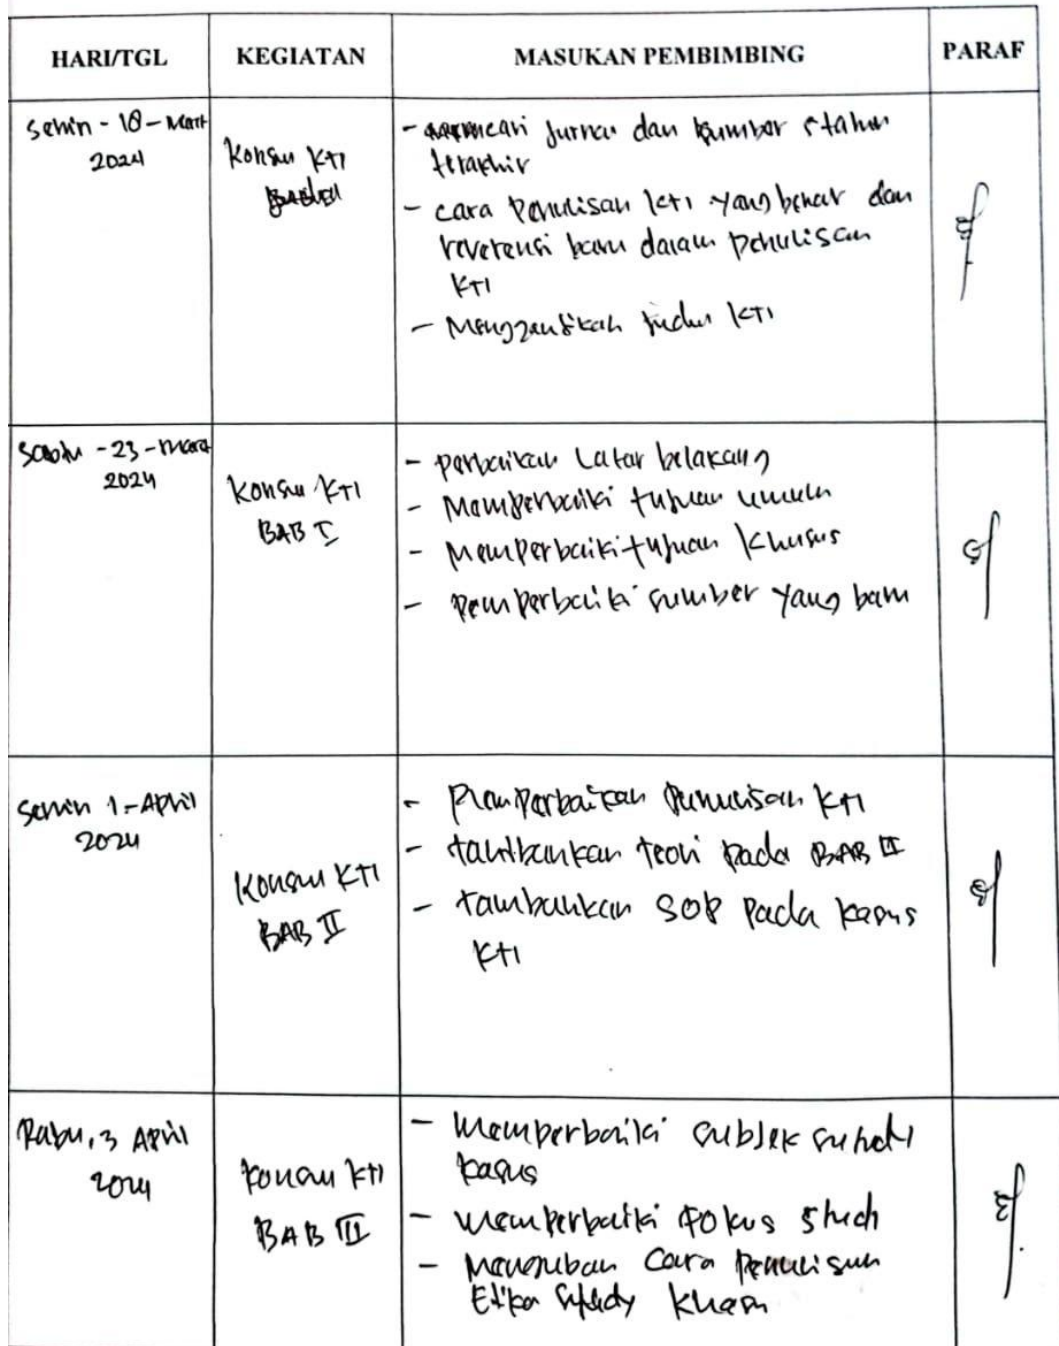 HARI/TGL KEGIATAN MASUKAN PEMBIMBING PARAF
Senin - 18 - Maret
2024
Konsul KTI
- mencari Jurnal dan sumber 5 tahun
terakhir
- cara Penulisan KTI yang benar dan
reverensi baru dalam penulisan
KTI
- Menggantikan judul KTI
Sabtu - 23 - Maret
2024
Konsul KTI
BAB I
- perbaikan Latar belakang
- Memperbaiki tujuan umum
- Memperbaiki tujuan Khusus
- Pemperbaiki sumber yang baru
Senin 1 - April
2024
Konsul KTI
BAB II
- Pemperbaikan Penulisan KTI
- tambahkan teori pada BAB II
- tambahkan SOP pada kasus
KTI
Rabu, 3 April
2024
Konsul KTI
BAB III
- Memperbaiki subjek studi
kasus
- Memperbaiki fokus studi
- Mengubah Cara Penulisan
Etika